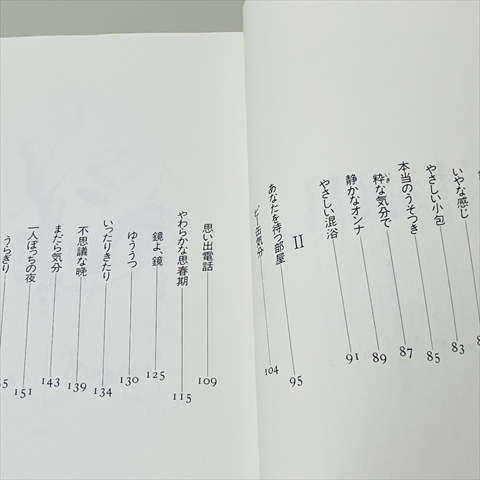 いやな感じ
やさしい小包 83
本当のうそつき 85
粋な気分で 87
いき
静かなオンナ 89
やさしい混浴 91
II
あなたを待つ部屋 95
ピー缶気分 104
思い出電話 109
やわらかな思春期 115
鏡よ、鏡 125
ゆううつ 130
いったりきたり 134
不思議な晩 139
まだら気分 143
一人ぼっちの夜 151
うらぎり